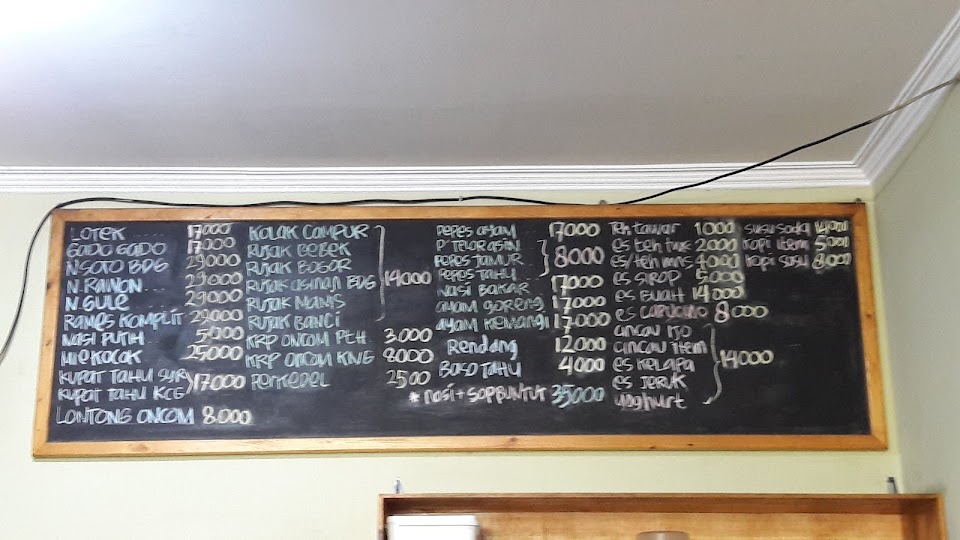 LOTEK ... 17.000
GADO GADO 17.000
N.SOTO BDG 29000
N. RAWON ... 29000
N. GULE ... 29000
RAMES KOMPLIT 29000
NASI PUTIH 5000
MIEKOCOK 25000
KUPAT TAHU SBY } 17.000
KUPAT TAHU KCG
LONTONG ONCOM 8.000
KOLAK CAMPUR
RUJAK BEBEK
RUJAK BOGOR
RUJAK ASINAN BDG } 14.000
RUJAK MANIS
RUJAK BANCI
KRP ONCOM PTH 3.000
KRP ONCOM KNG 8000
PERKEDEL 2500
pepes ayam ... 17.000
P' TELORASIN
PEPES JAMUR } 8000
PEPES TAHU
NASI BAKAR 17.000
ayam goreng 17.000
ayam kemangi 17.000
Rendang 12.000
Baso Tahu 4000
* nasi + SOP BUNTUT 35.000
Teh tawar 1.000
es teh 2.000
es/teh mns 4.000
es sirop 5.000
es BUAH 14.000
es capucino 8.000
cincau ijo
cincau item
es kelapa } 14.000
es JERUK
yoghurt
susu soda 14.000
kopi item 5.000
kopi susu 8.000